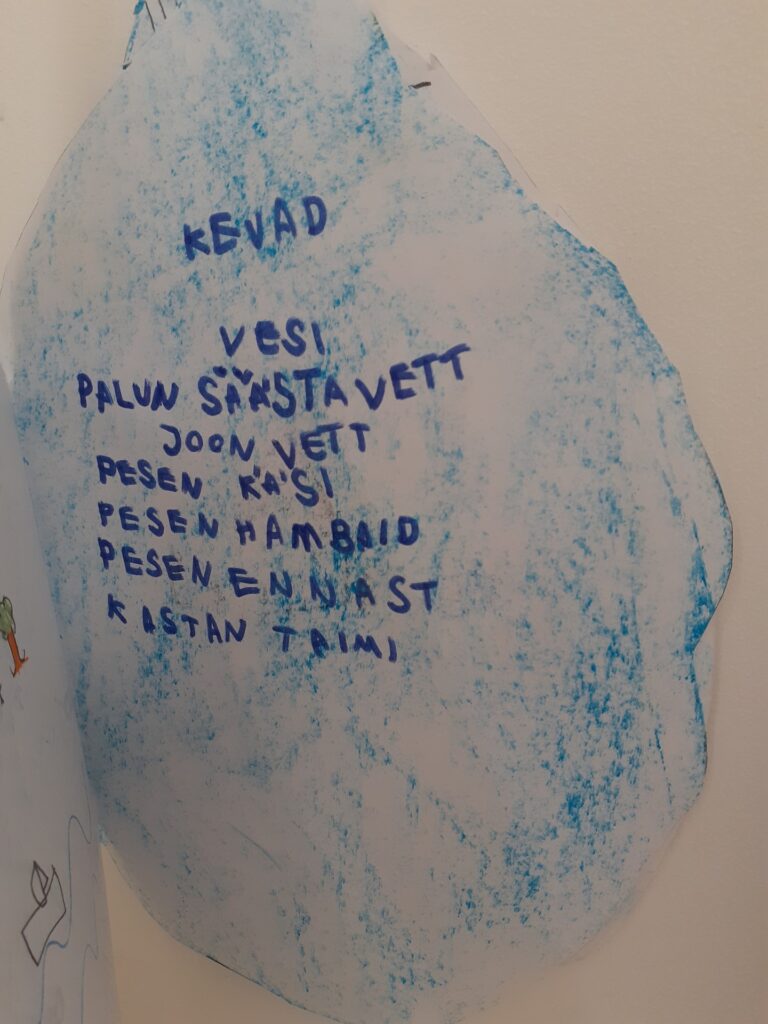 KEVAD
VESI
PALUN SÄÄSTA VETT
JOON VETT
PESEN KÄSI
PESEN HAMBAID
PESEN ENNAST
KASTAN TAIMI